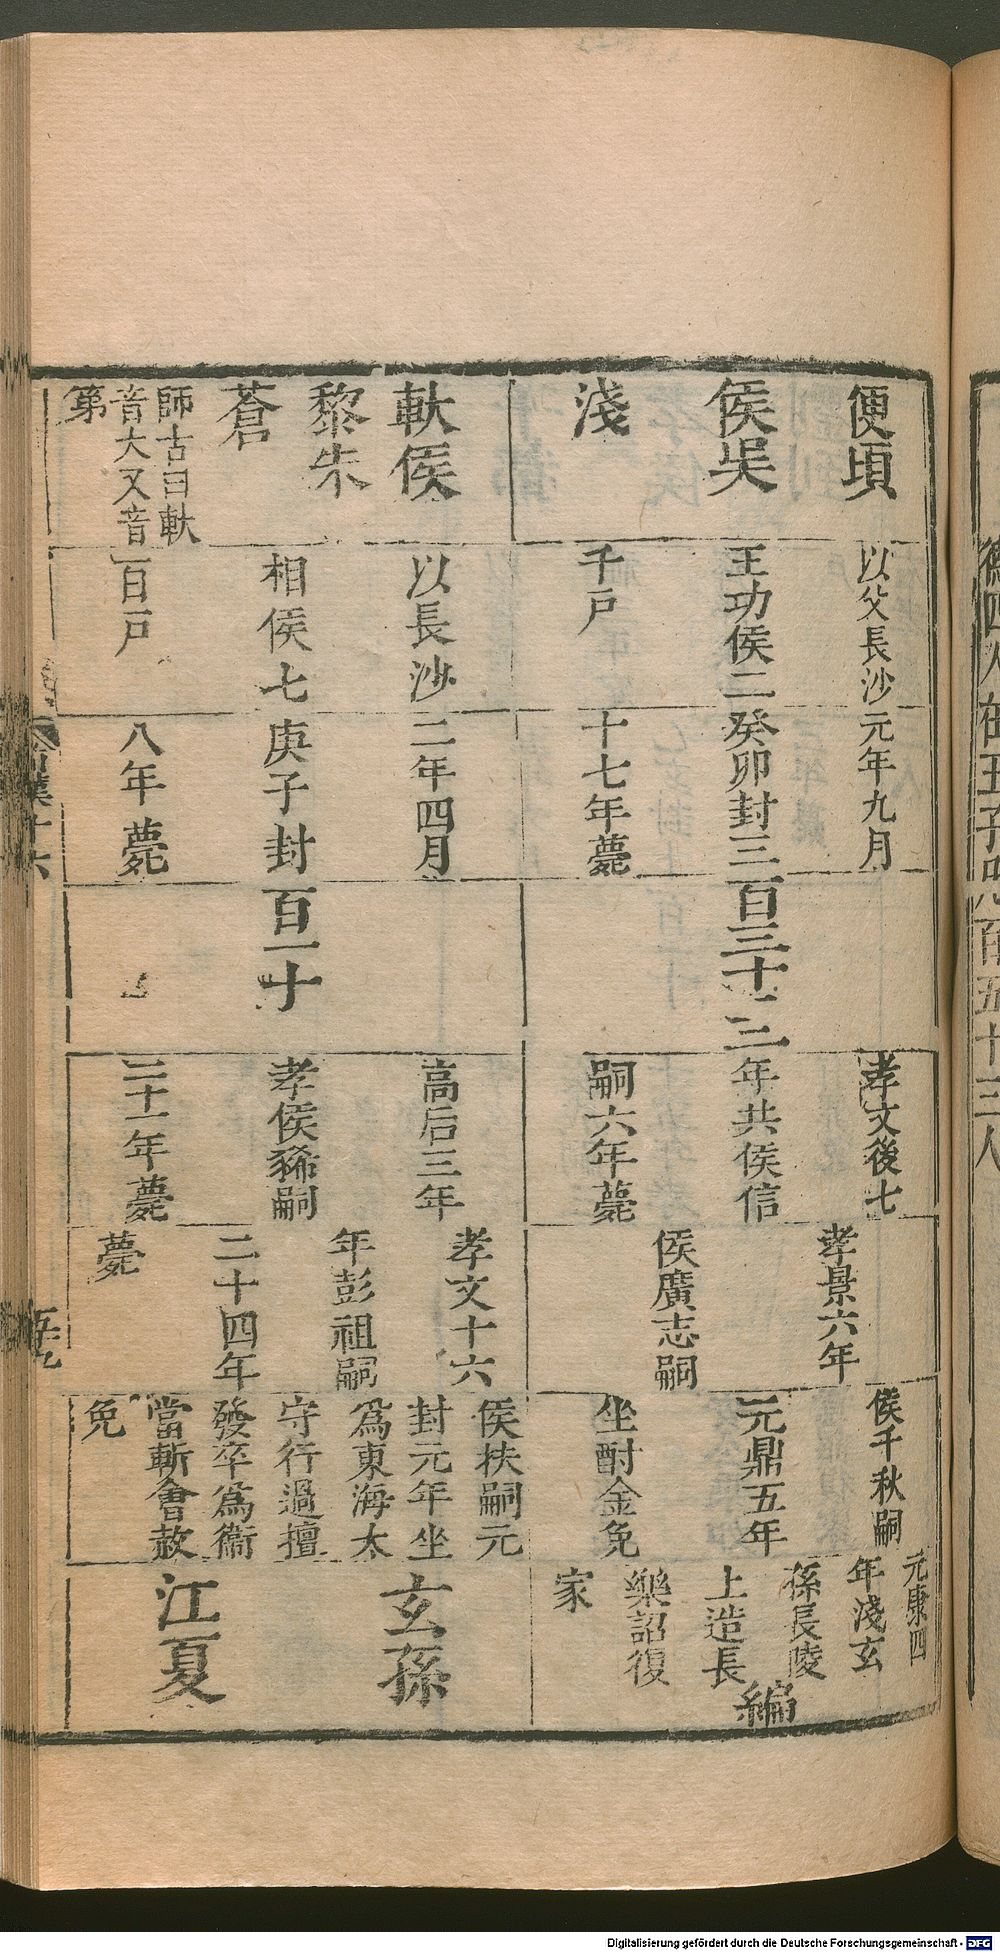 便頃
侯吴
淺
以父長沙
王功侯二
千戸
元年九月
癸卯封三
十七年薨
百三十二
孝文後七
年共侯信
嗣六年薨
孝景六年
侯廣志嗣
侯千秋嗣
元鼎五年
坐酎金免
元康四
年淺玄
孫長陵
上造長
樂詔復
家
編
軑侯
黎朱
蒼
師古曰軑
音大又音
第
以長沙
相侯七
百戸
二年四月
庚子封
八年薨
百二十
高后三年
孝侯豨嗣
二十一年薨
孝文十六
年彭祖嗣
二十四年
薨
侯扶嗣元
封元年坐
爲東海太
守行過擅
發卒爲衞
當斬會赦
免
玄孫
江夏
漢十六
德四人在王子
百五十三人
Digitalisierung gefördert durch die Deutsche Forschungsgemeinschaft - DFG